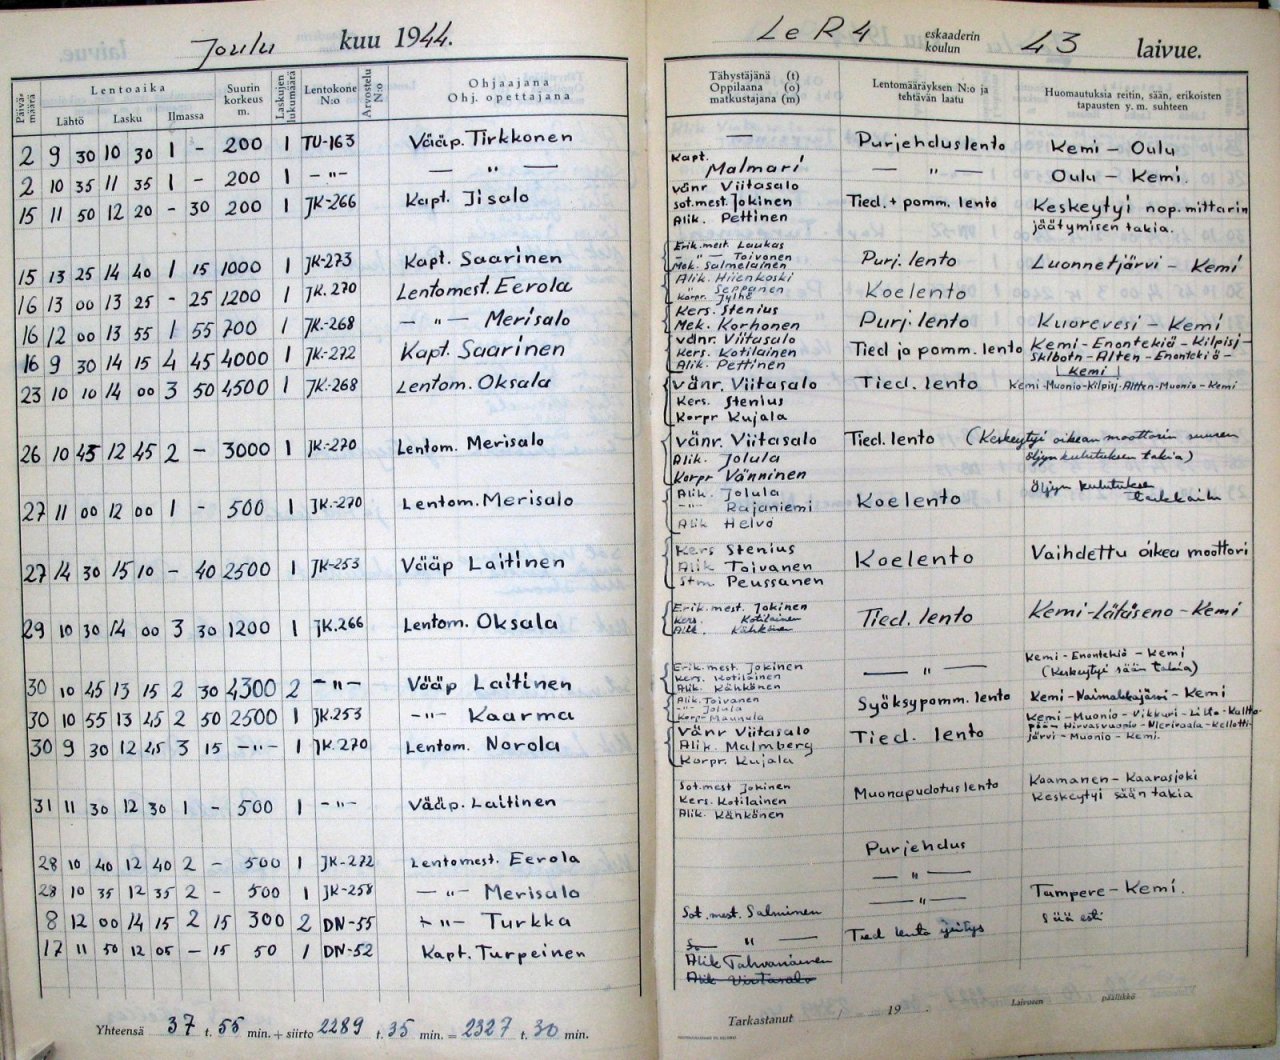 Joulu kuu 1944.
Päivämäärä
Lentoaika
Lähtö Lasku Ilmassa
Suurin korkeus m.
Laskujen lukumäärä
Lentokone N:o
Arvostelu N:o
Ohjaajana
Ohj. opettajana
2 9 30 10 30 1 - 200 1 TU-163 Vääp. Tirkkonen
2 10 35 11 35 1 - 200 1 -"- — " —
15 11 50 12 20 - 30 200 1 JK-266 Kapt. Iisalo
15 13 25 14 40 1 15 1000 1 JK-273 Kapt. Saarinen
16 13 00 13 25 - 25 1200 1 JK. 270 Lentomest. Eerola
16 12 00 13 55 1 55 700 1 JK.-268 — " — Merisalo
16 9 30 14 15 4 45 4000 1 JK-272 Kapt. Saarinen
23 10 10 14 00 3 50 4500 1 JK-268 Lentom. Oksala
26 10 45 12 45 2 - 3000 1 JK-270 Lentom. Merisalo
27 11 00 12 00 1 - 500 1 JK.-270 Lentom. Merisalo
27 14 30 15 10 - 40 2500 1 JK-253 Vääp Laitinen
29 10 30 14 00 3 30 1200 1 JK.266 Lentom. Oksala
30 10 45 13 15 2 30 4300 2 -"- Vääp Laitinen
30 10 55 13 45 2 50 2500 1 JK.253 -"- Kaarma
30 9 30 12 45 3 15 -"- 1 JK.270 Lentom. Norola
31 11 30 12 30 1 - 500 1 -"- Vääp. Laitinen
28 10 40 12 40 2 - 500 1 JK-272 Lentomest. Eerola
28 10 35 12 35 2 - 500 1 JK-258 — " — Merisalo
8 12 00 14 15 2 15 300 2 DN-55 -"- Turkka
17 11 50 12 05 - 15 50 1 DN-52 Kapt. Turpeinen
Yhteensä 37 t. 55 min. + siirto 2289 t. 35 min. = 2327 t. 30 min.
Le R 4 eskaaderin koulun 43 laivue.
Tähystäjänä (t)
Oppilaana (o)
matkustajana (m)
Lentomääräyksen N:o ja
tehtävän laatu
Huomautuksia reitin, sään, erikoisten
tapausten y. m. suhteen
Purjehduslento Kemi - Oulu
Kapt. Malmari — " — Oulu - Kemi.
vänr Viitasalo
sot.mest. Jokinen Tied. + pomm. lento Keskeytyi nop. mittarin
Alik. Pettinen jäätymisen takia.
Erik.mest. Laukas
-"- Toivonen
Mek. Salmelainen Purj. lento Luonnetjärvi - Kemi
Alik. Hiienkoski
" Seppänen Koelento
Korpr. Jylhe
Kers. Stenius
Mek. Korhonen Purj. lento Kuorevesi - Kemi
vänr. Viitasalo
Kers. Kotilainen Tied ja pomm. lento Kemi - Enontekiö - Kilpisj-
Alik. Pettinen Skibotn - Alten - Enontekiö -
Kemi
vänr. Viitasalo Tied. lento Kemi-Muonio-Kilpisj-Altten-Muonio-Kemi
Kers. Stenius
Korpr Kujala
vänr. Viitasalo Tied. lento (Keskeytyi oikean moottorin suuren
Alik. Jolula öljyn kulutuksen takia)
Korpr Vänninen
Alik. Jolula Öljyn kulutuksen
-"- Rajaniemi Koelento
Alik Helvo
Kers Stenius
Alik Toivanen Koelento Vaihdettu oikea moottori
Stm Peussanen
Erik.mest. Jokinen
Kers. Kotilainen Tied. lento Kemi-Lätäseno-Kemi
Alik. Kähkönen
Erik.mest. Jokinen Kemi - Enontekiö - Kemi
Kers. Kotilainen — " — (Keskeytyi sään takia)
Alik. Kähkönen
Alik. Toivanen
-"- Jolula Syöksypomm. lento Kemi-Naimakkajärvi-Kemi
Korpr Maunula
Vänr Viitasalo Kemi-Muonio-Vikkuri-
Alik. Malmberg Tied. lento
Korpr. Kujala järvi - Muonio - Kemi.
Sot.mest Jokinen Kaamanen - Kaarasjoki
Kers. Kotilainen Muonapudotuslento Keskeytyi sään takia
Alik. Kähkönen
Purjehdus
— " —
— " — Tampere - Kemi.
Sot. mest. Salminen Sää esti
— " — Tied lento yritys
Alik Tahvanainen
Tarkastanut / 19 . Laivueen päällikkö